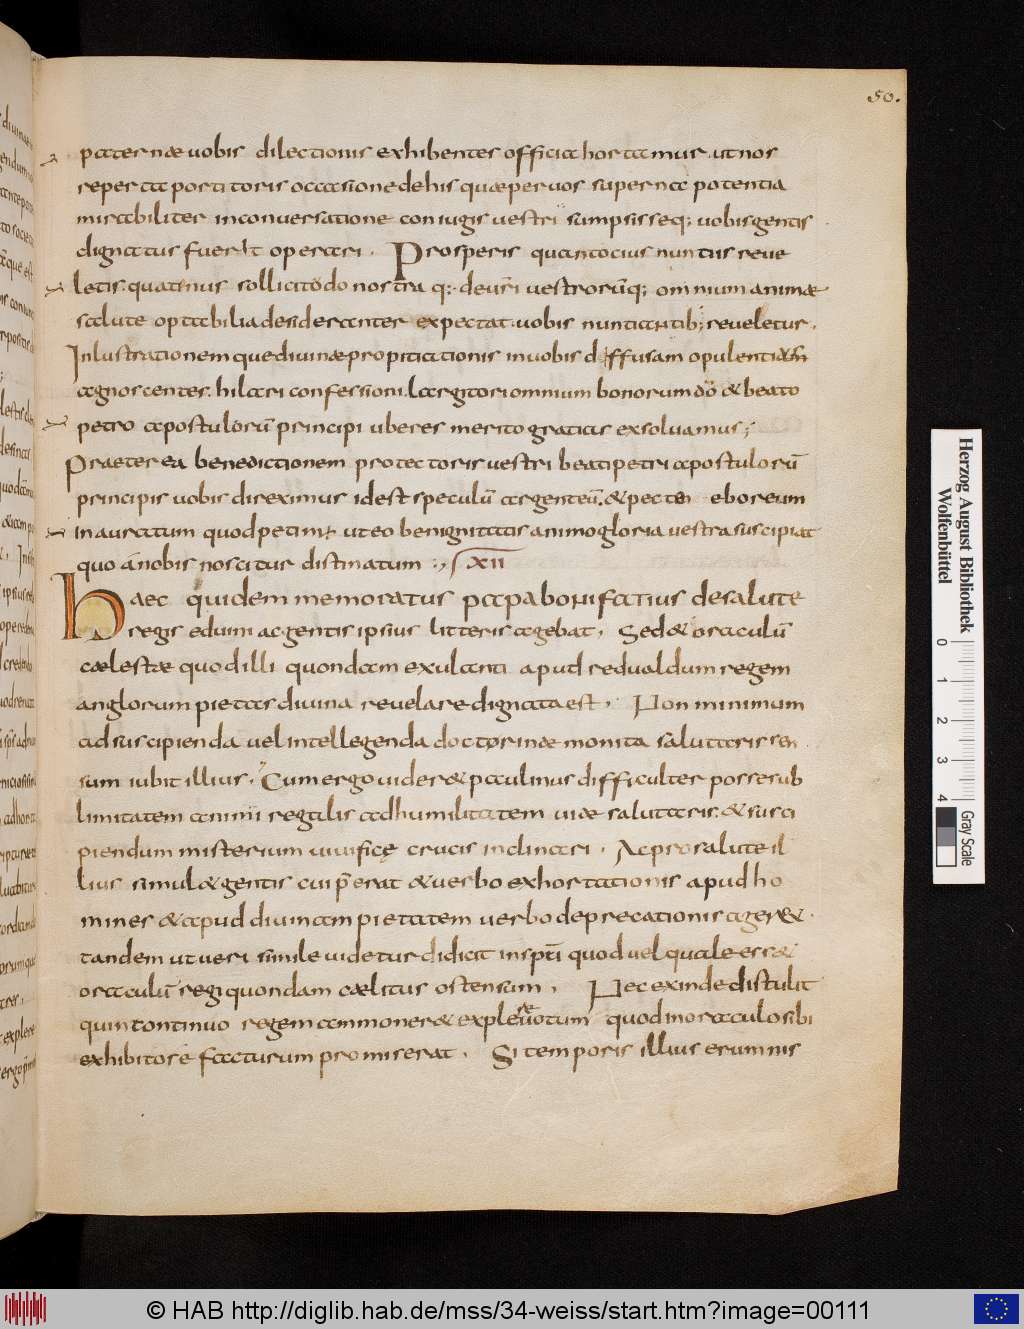 50.
paternae uobis dilectionis exhibentes officia hortamur. ut nos
reperta portitoris occasione de his quae per uos superna potentia
mirabiliter in conuersatione coniugis uestri sumpsisseq; uobis gentis
dignatus fuerit operari. Prosperis quantocius nuntiis reue
letis. quatinus sollicitodo nostra q; de uri uestrorumq; omnium animae
salute optabilia desideranter expectat. uobis nuntiantib; reueletur.
Inlustrationemque diuinae propitiationis in uobis diffusam opulentiam
agnoscentes. hilari confessioni. largitori omnium bonorum dō & beato
petro apostulorū principi uberes merito gratias exsoluamus;
Praeterea benedictionem protectoris uestri beati petri apostulorū
principis uobis direximus id est speculū argenteū. & pecten eboreum
inauratum quod petimus ut eo benignitatis animo gloria uestra suscipiat
quo a nobis noscitur distinatum XII
haec quidem memoratus papa bonifatius de salute
regis eduini ac gentis ipsius litteris agebat. Sed & oraculū
caelestae quod illi quondam exulanti apud redualdum regem
anglorum pietas diuina reuelare dignata est. Non minimum
ad suscipienda uel intellegenda doctorinae monita salutaris sen
sum iubit illius. Cum ergo uider& paulinus difficulter posse sub
limitatem animi regalis ad humilitatem uiae salutaris. & susci
piendum misterium uiuificę crucis inclinari. Ac pro salute il
lius simul & gentis cui p̄erat & uerbo exhortationis apud ho
mines & apud diuinam pietatem uerbo deprecationis ager&.
tandem ut ueri simile uidetur didicit in spū quod uel quale ess&
oraculū regi quondam caelitus ostensum. Nec exinde distulit
quin continuo regem ammoner& explere uotum quod in oraculo sibi
exhibitore facturum promiserat. Si temporis illius erumnis
Herzog August Bibliothek
Wolfenbüttel
0 1 2 3 4
Gray Scale
© HAB http://diglib.hab.de/mss/34-weiss/start.htm?image=00111